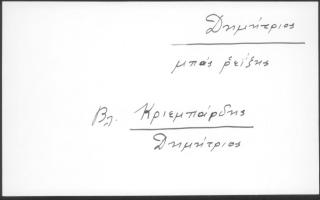 Δημήτριος
μπάς ρεΐζης
Βλ. Κριεμπάρδης
Δημήτριος